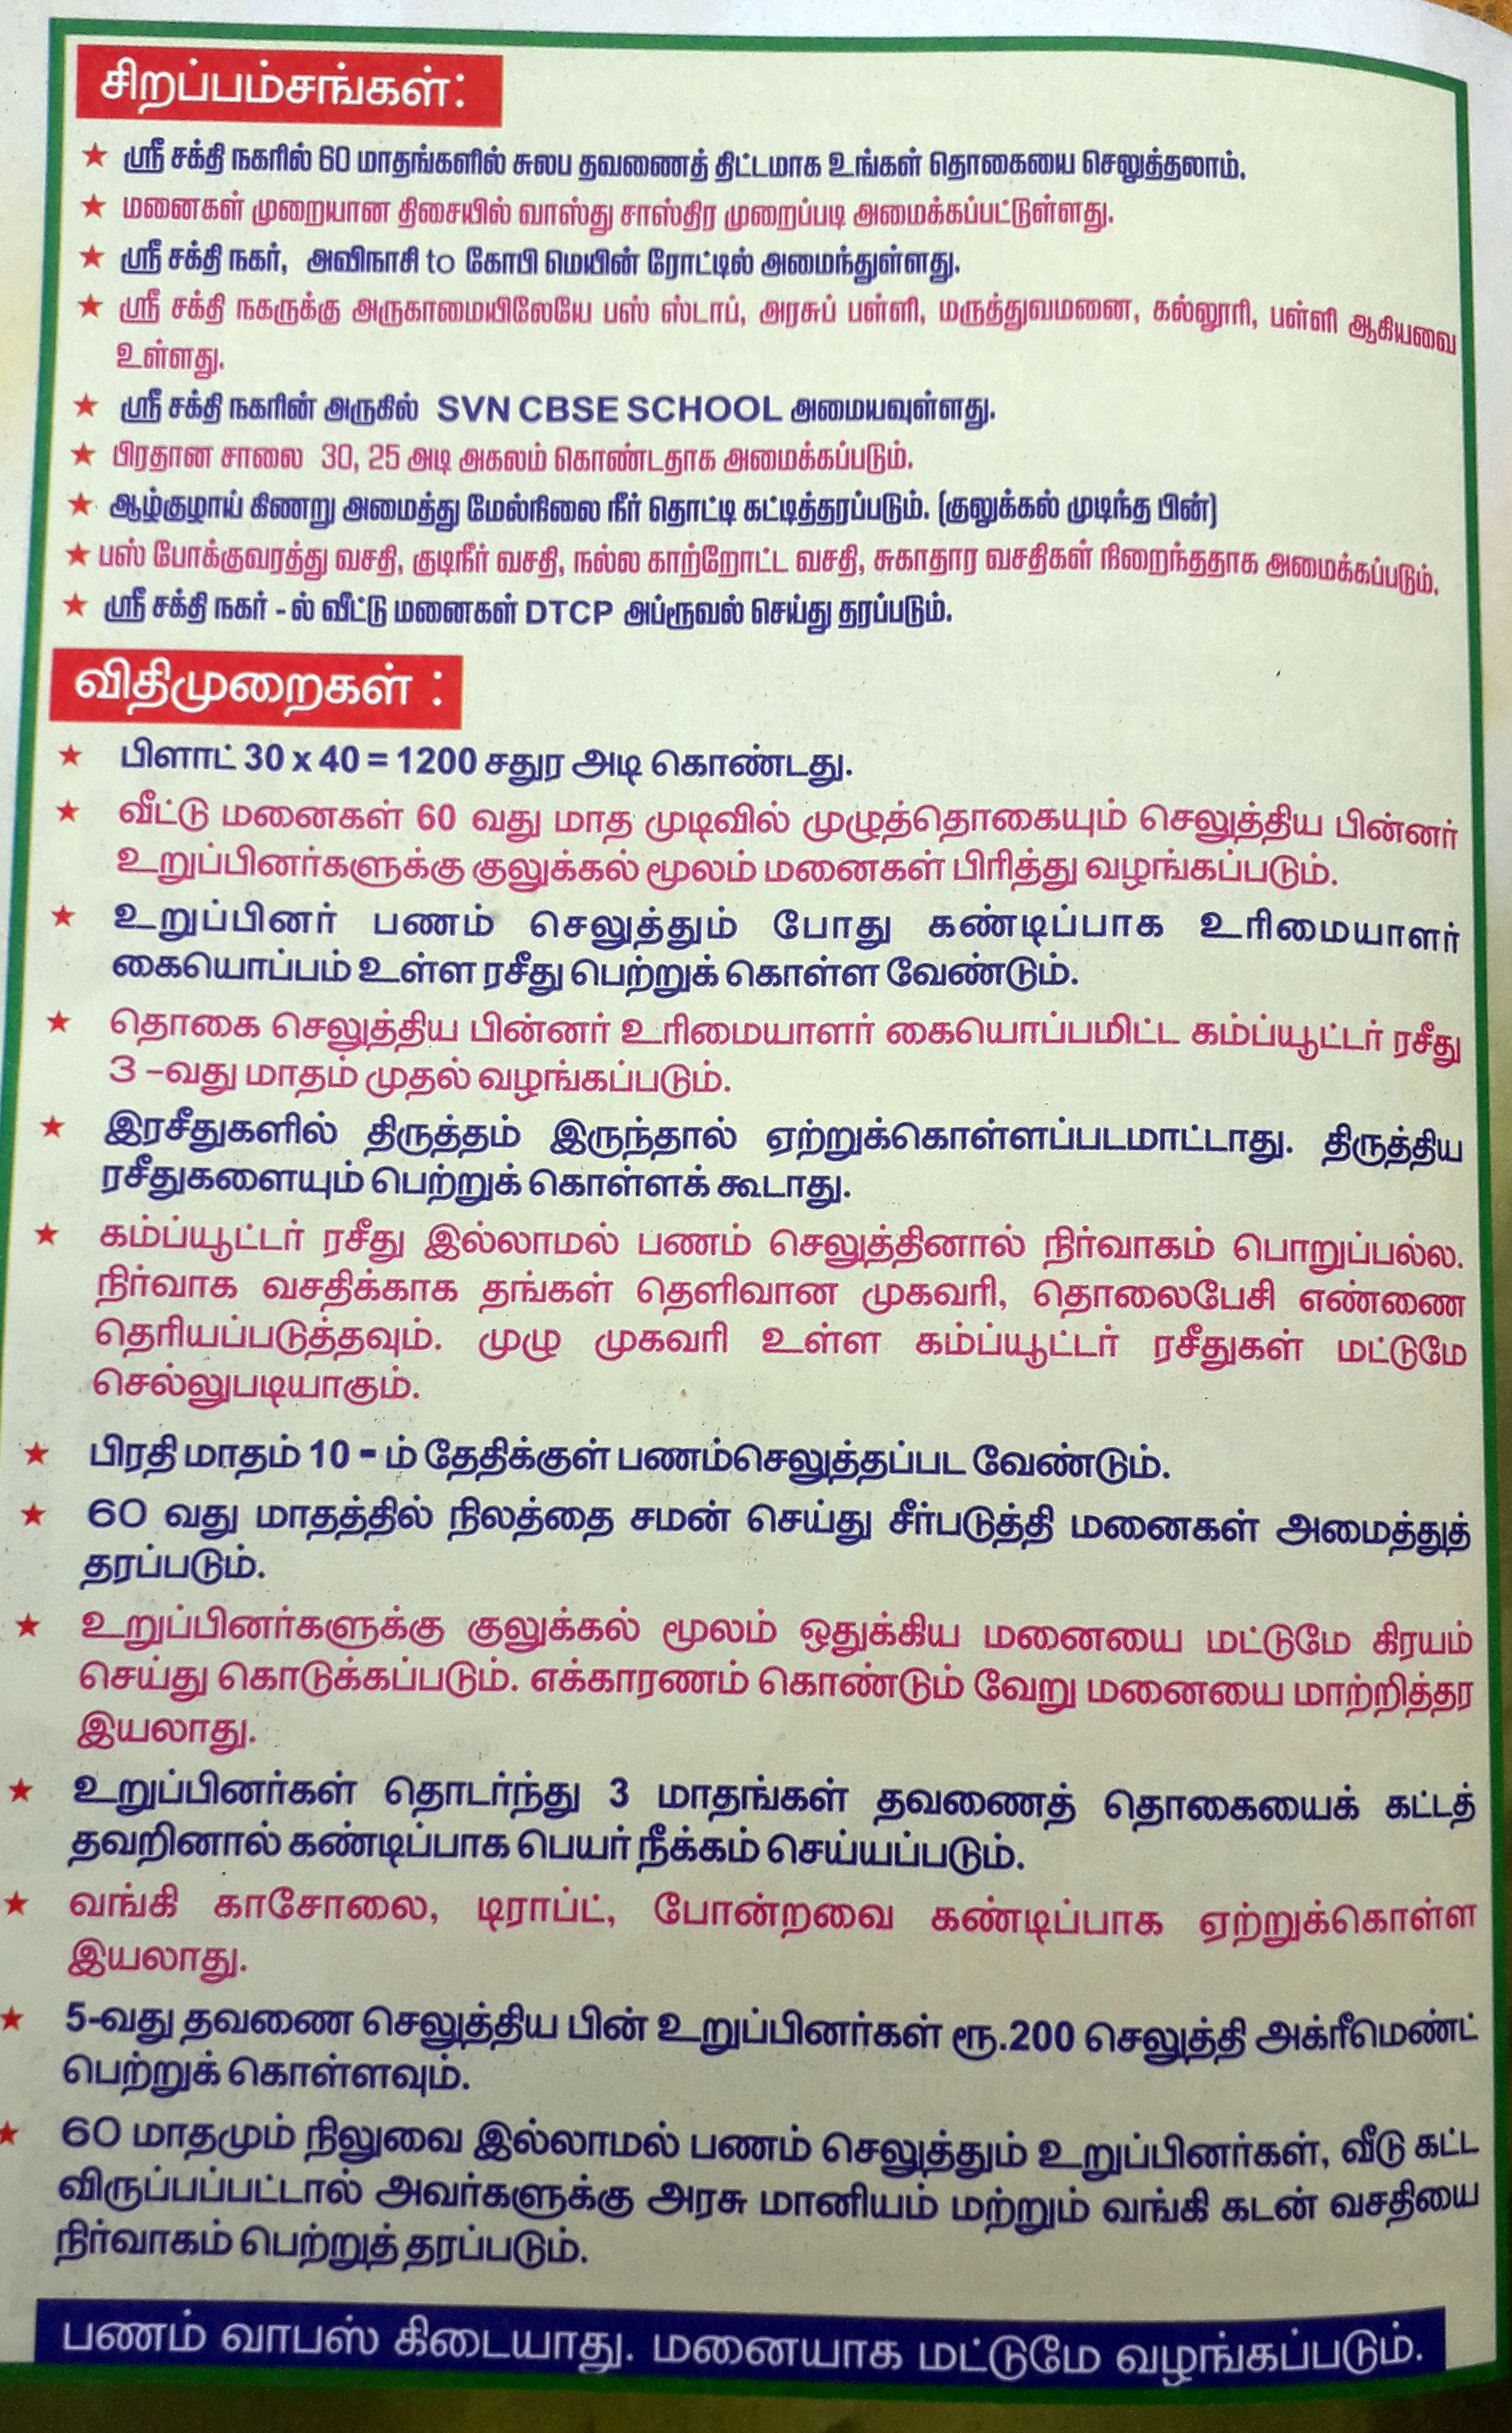 சிறப்பம்சங்கள்:
★ ஸ்ரீ சக்தி நகரில் 60 மாதங்களில் சுலப தவணைத் திட்டமாக உங்கள் தொகையை செலுத்தலாம்.
★ மனைகள் முறையான திசையில் வாஸ்து சாஸ்திர முறைப்படி அமைக்கப்பட்டுள்ளது.
★ ஸ்ரீ சக்தி நகர், அவிநாசி to கோபி மெயின் ரோட்டில் அமைந்துள்ளது.
★ ஸ்ரீ சக்தி நகருக்கு அருகாமையிலேயே பஸ் ஸ்டாப், அரசுப் பள்ளி, மருத்துவமனை, கல்லூரி, பள்ளி ஆகியவை
உள்ளது.
★ ஸ்ரீ சக்தி நகரின் அருகில் SVN CBSE SCHOOL அமையவுள்ளது.
★ பிரதான சாலை 30, 25 அடி அகலம் கொண்டதாக அமைக்கப்படும்.
★ ஆழ்குழாய் கிணறு அமைத்து மேல்நிலை நீர் தொட்டி கட்டித்தரப்படும். (குலுக்கல் முடிந்த பின்)
★ பஸ் போக்குவரத்து வசதி, குடிநீர் வசதி, நல்ல காற்றோட்ட வசதி, சுகாதார வசதிகள் நிறைந்ததாக அமைக்கப்படும்.
★ ஸ்ரீ சக்தி நகர் - ல் வீட்டு மனைகள் DTCP அப்ரூவல் செய்து தரப்படும்.
விதிமுறைகள் :
★ பிளாட் 30 x 40 = 1200 சதுர அடி கொண்டது.
★ வீட்டு மனைகள் 60 வது மாத முடிவில் முழுத்தொகையும் செலுத்திய பின்னர்
உறுப்பினர்களுக்கு குலுக்கல் மூலம் மனைகள் பிரித்து வழங்கப்படும்.
★ உறுப்பினர் பணம் செலுத்தும் போது கண்டிப்பாக உரிமையாளர்
கையொப்பம் உள்ள ரசீது பெற்றுக் கொள்ள வேண்டும்.
★ தொகை செலுத்திய பின்னர் உரிமையாளர் கையொப்பமிட்ட கம்ப்யூட்டர் ரசீது
3 -வது மாதம் முதல் வழங்கப்படும்.
★ இரசீதுகளில் திருத்தம் இருந்தால் ஏற்றுக்கொள்ளப்படமாட்டாது. திருத்திய
ரசீதுகளையும் பெற்றுக் கொள்ளக் கூடாது.
★ கம்ப்யூட்டர் ரசீது இல்லாமல் பணம் செலுத்தினால் நிர்வாகம் பொறுப்பல்ல.
நிர்வாக வசதிக்காக தங்கள் தெளிவான முகவரி, தொலைபேசி எண்ணை
தெரியப்படுத்தவும். முழு முகவரி உள்ள கம்ப்யூட்டர் ரசீதுகள் மட்டுமே
செல்லுபடியாகும்.
★ பிரதி மாதம் 10 - ம் தேதிக்குள் பணம்செலுத்தப்பட வேண்டும்.
★ 60 வது மாதத்தில் நிலத்தை சமன் செய்து சீர்படுத்தி மனைகள் அமைத்துத்
தரப்படும்.
★ உறுப்பினர்களுக்கு குலுக்கல் மூலம் ஒதுக்கிய மனையை மட்டுமே கிரயம்
செய்து கொடுக்கப்படும். எக்காரணம் கொண்டும் வேறு மனையை மாற்றித்தர
இயலாது.
★ உறுப்பினர்கள் தொடர்ந்து 3 மாதங்கள் தவணைத் தொகையைக் கட்டத்
தவறினால் கண்டிப்பாக பெயர் நீக்கம் செய்யப்படும்.
★ வங்கி காசோலை, டிராப்ட், போன்றவை கண்டிப்பாக ஏற்றுக்கொள்ள
இயலாது.
★ 5-வது தவணை செலுத்திய பின் உறுப்பினர்கள் ரூ.200 செலுத்தி அக்ரீமெண்ட்
பெற்றுக் கொள்ளவும்.
★ 60 மாதமும் நிலுவை இல்லாமல் பணம் செலுத்தும் உறுப்பினர்கள், வீடு கட்ட
விருப்பப்பட்டால் அவர்களுக்கு அரசு மானியம் மற்றும் வங்கி கடன் வசதியை
நிர்வாகம் பெற்றுத் தரப்படும்.
பணம் வாபஸ் கிடையாது. மனையாக மட்டுமே வழங்கப்படும்.